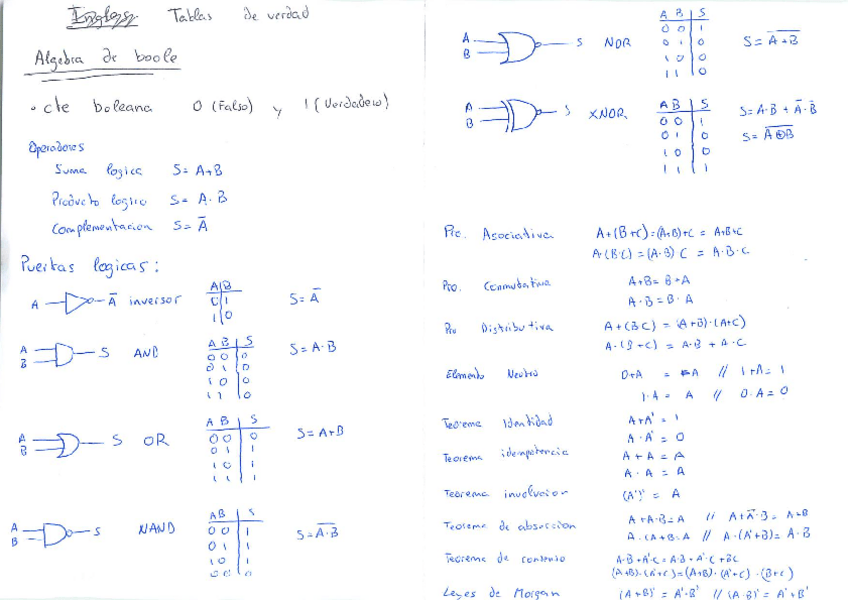 Tablas de verdad
Algebra de boole
• cte boleana 0 (Falso) y 1 (Verdadero)
Operadores
Suma logica S = A+B
Producto logico S = A·B
Complementacion S = A̅
Puertas logicas:
A A̅ inversor
A B
0 1
1 0
S = A̅
A
B
S AND
A B S
0 0 0
0 1 0
1 0 0
1 1 0
S = A·B
A
B
S OR
A B S
0 0 0
0 1 1
1 0 1
1 1 1
S = A+B
A
B
S NAND
A B S
0 0 1
0 1 1
1 0 1
S = A̅·̅B̅
A
B
S NOR
A B S
0 0 1
0 1 0
1 0 0
1 1 0
S = A̅+̅B̅
A
B
S XNOR
A B S
0 0 1
0 1 0
1 0 0
1 1 1
S = A·B + A̅·B̅
S = A̅⊕̅B̅
Pro. Asociativa A+(B+C)=(A+B)+C = A+B+C
A·(B·C)=(A·B) C = A·B·C
Pro. Conmutativa A+B = B+A
A·B = B·A
Pro Distributiva A+(B C) = (A+B)·(A+C)
A·(B+C) = A·B + A·C
Elemento Neutro 0+A = A // 1+A = 1
1·A = A // 0·A = 0
Teorema Identidad A+A' = 1
A·A' = 0
Teorema idempotencia A+A = A
A·A = A
Teorema involucion (A')' = A
Teorema de absorcion A+A·B=A // A+A̅·B = A+B
A·(A+B)=A // A·(A'+B) = A·B
Teorema de consenso A·B+A'·C=A·B+A'·C+BC
(A+B)·(A'+C)=(A+B)·(A'+C)·(B+C)
Leyes de Morgan (A+B)' = A'·B' // (A·B)' = A'+B'